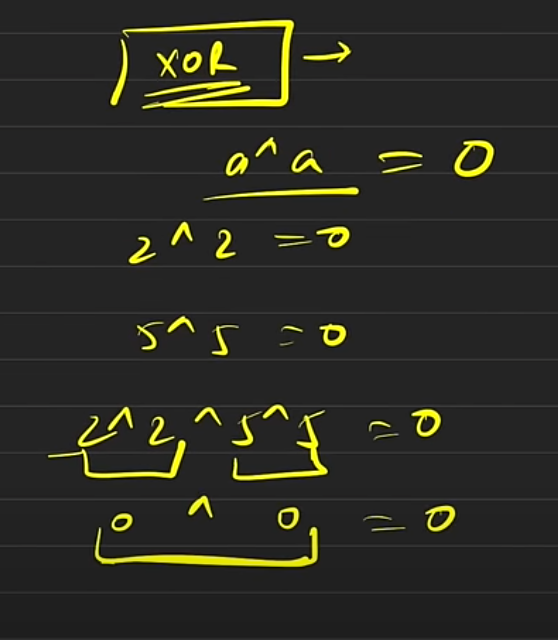 XOR →
a^a = 0
2^2 = 0
5^5 = 0
2^2^5^5 = 0
0 ^ 0 = 0